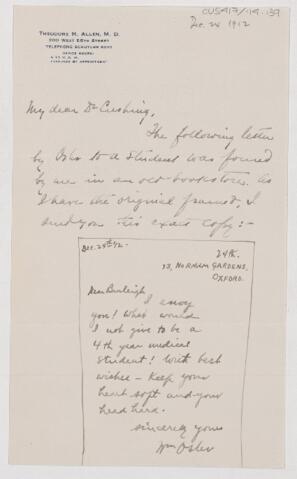 CUS417/114.139
Dec. 28 1912
THEODORE H. ALLEN, M. D.
200 WEST 86TH STREET
TELEPHONE SCHUYLER
OFFICE HOURS:
My dear Dr Cushing,
The following letter
by Osler to a student was found
by me in an old bookstore. As
I have the original framed, I
send you this exact copy:-
Dec. 28th 12.
24th.
13, NORHAM GARDENS,
OXFORD.
Dear Burleigh
I envy
you! What would
I not give to be a
4th year medical
student! With best
wishes - Keep your
heart soft and your
head hard.
Sincerely yours
Wm Osler